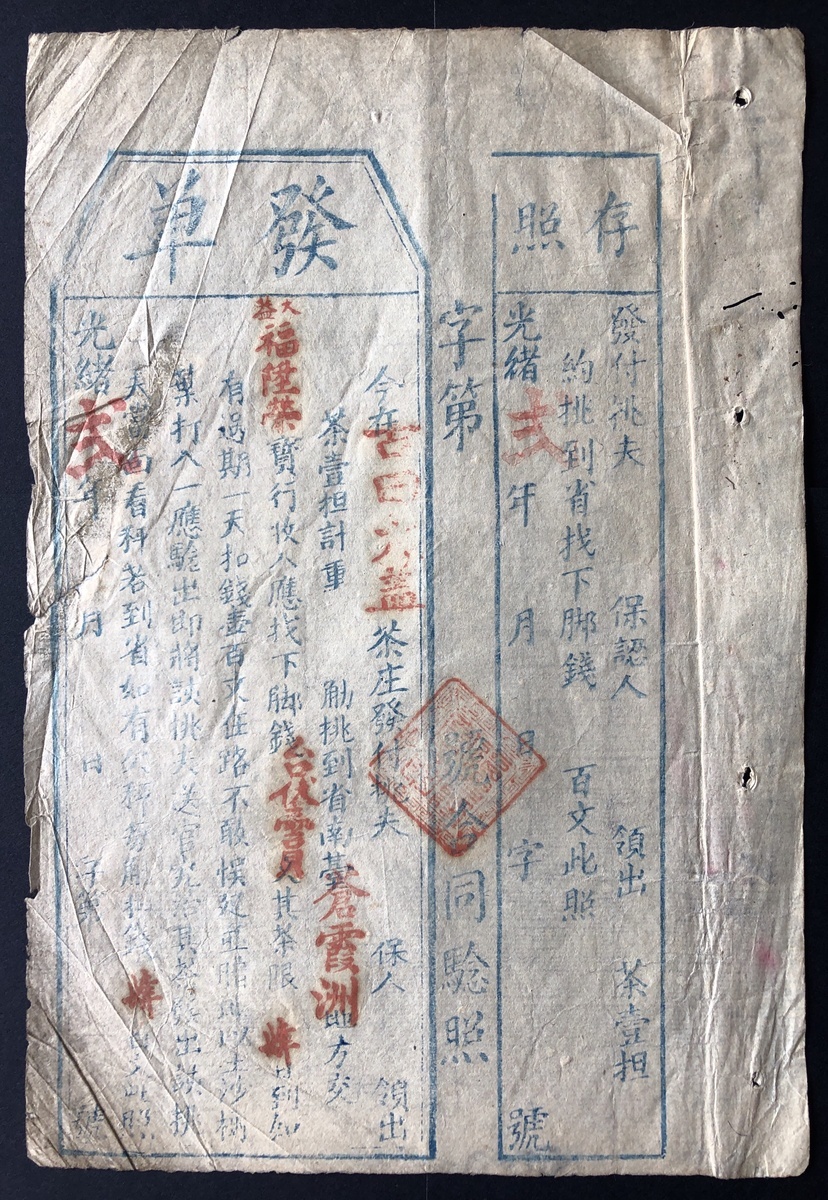 存照
發付挑夫 保認人 領出 茶壹担
約挑到省找下脚錢 百文此照
光緒 年 月 日 字 號
字第 號合同騐照
發單
今在古田大益茶庄發付挑夫 保人 領出
茶壹担計重 觔挑到省南臺蒼霞洲 即方交
大益福陞榮寶行收入應找下脚錢台伏 其茶限 日到如
有過期一天扣錢壹百文在路不敢悞延
葉打入一應騐出即將該挑夫送官究治其茶 出該挑
夫 向看秤若到省如有欠秤每觔扣錢 百文此照
光緒 年 月 日 字第 號